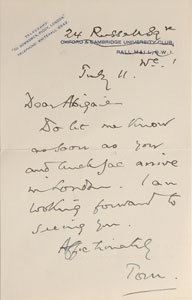 24 Russell Sqre
OXFORD & CAMBRIDGE UNIVERSITY CLUB,
PALL MALL, S.W.1.
W.C.1
July 11.
Dear Abigail
Do let me know
as soon as you
and arrive
in London. I am
looking forward to
seeing you.
Affectionately
Tom.